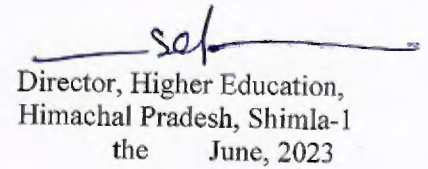 Sd/-
Director, Higher Education,
Himachal Pradesh, Shimla-1
the June, 2023